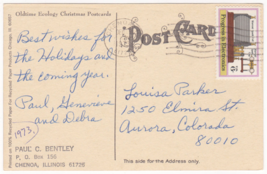 Oldtime Ecology Christmas Postcards
POST CARD
Best wishes for
the Holidays and
the coming year.
Paul, Genevieve
and Debra
1973
PAUL C. BENTLEY
P. O. Box 150
CHENOA, ILLINOIS 61726
Louisa Parker
1250 Elmira St.
Aurora, Colorado
80010
This side for the Address only.